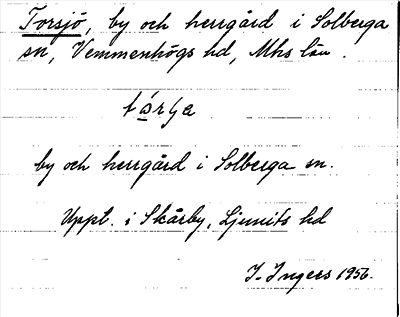 Torsjö, by och herrgård i Solberga
sn, Vemmenhögs hd, Mhs län.
by och herrgård i Solberga sn.
Uppt. i Skårby, Ljunits hd
I. Ingers 1956.